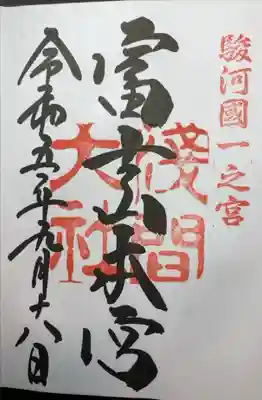 駿河國一之宮
富士本宮
淺間大社
令和五年九月十八日